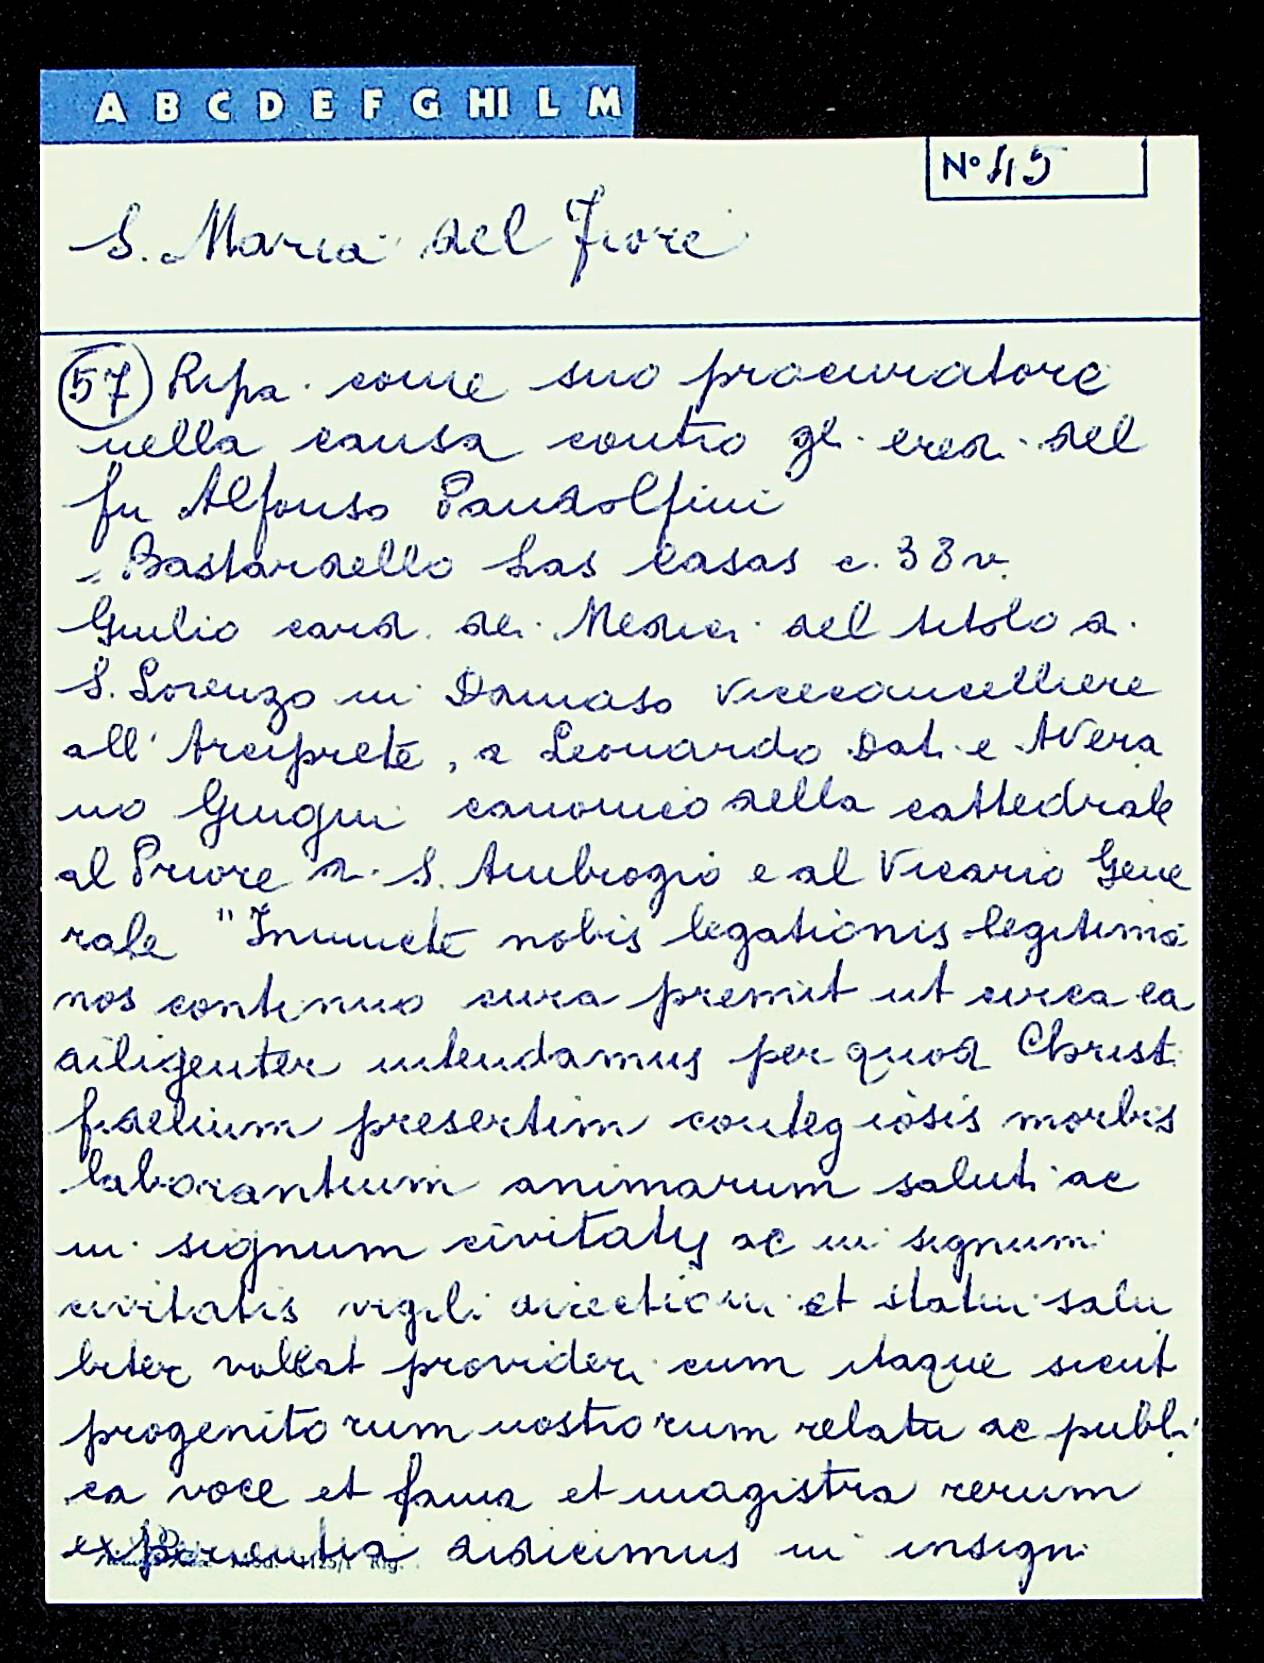 A B C D E F G HI L M
N° 45
S. Maria del Fiore
57 Ripa come suo procuratore
nella causa contro gl eredi del
fu Alfonso Pandolfini
Bastardello Las Casas c. 38v.
Giulio card. dei Medici del titolo di
S. Lorenzo in Damaso vicecancelliere
all'Arciprete, a Leonardo Dati e Avera
no canonico della cattedrale
al Priore di S. Ambrogio e al Vicario Gene
rale " nobis legationis legitima
nos continuo cura premit ut circa ea
diligenter intendamus per quod Christi
fidelium presertim contegiosis morbis
laborantium animarum saluti ac
in signum civitatis ac in signum
civitatis vigili directioni et statui salu
briter provideri cum itaque sicut
progenitorum nostrorum relatu ac publi
ca voce et fama et magistra rerum
experientia didicimus in insigni